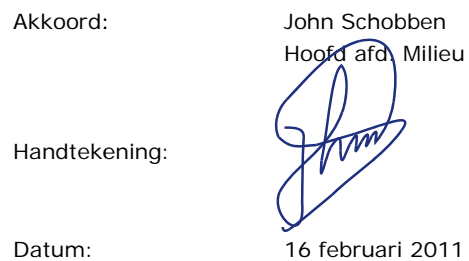 Akkoord: John Schobben
Hoofd afd. Milieu
Handtekening:
Datum: 16 februari 2011